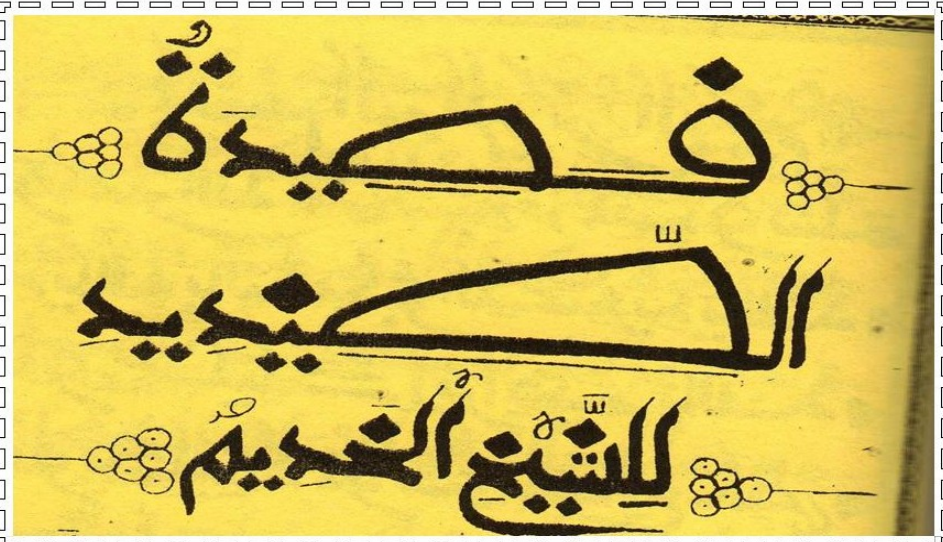 قصيدةُ
الصّينديد
للشّيخ الخديم